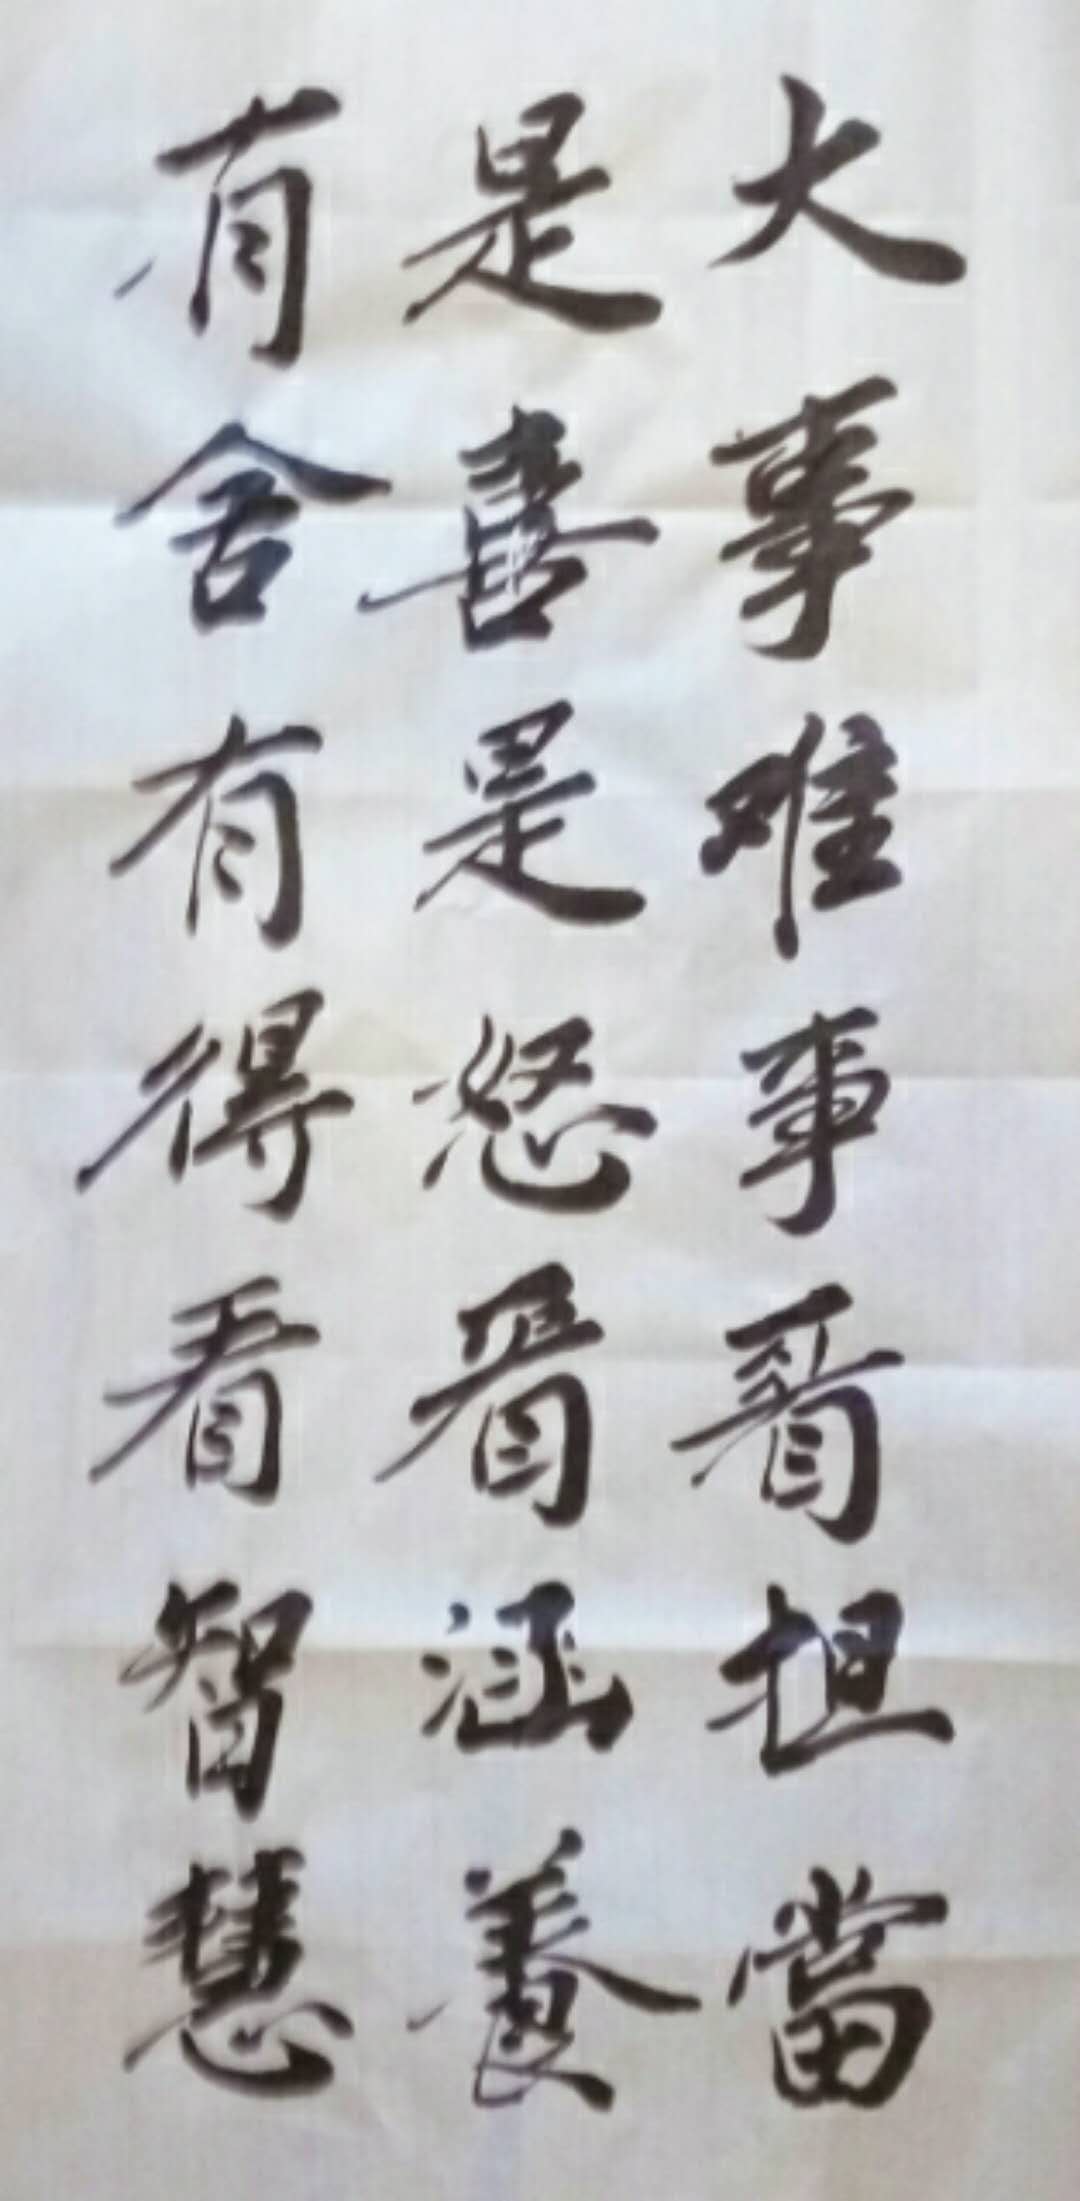 大事难事看担當
是喜是怒看涵養
有舍有得看智慧